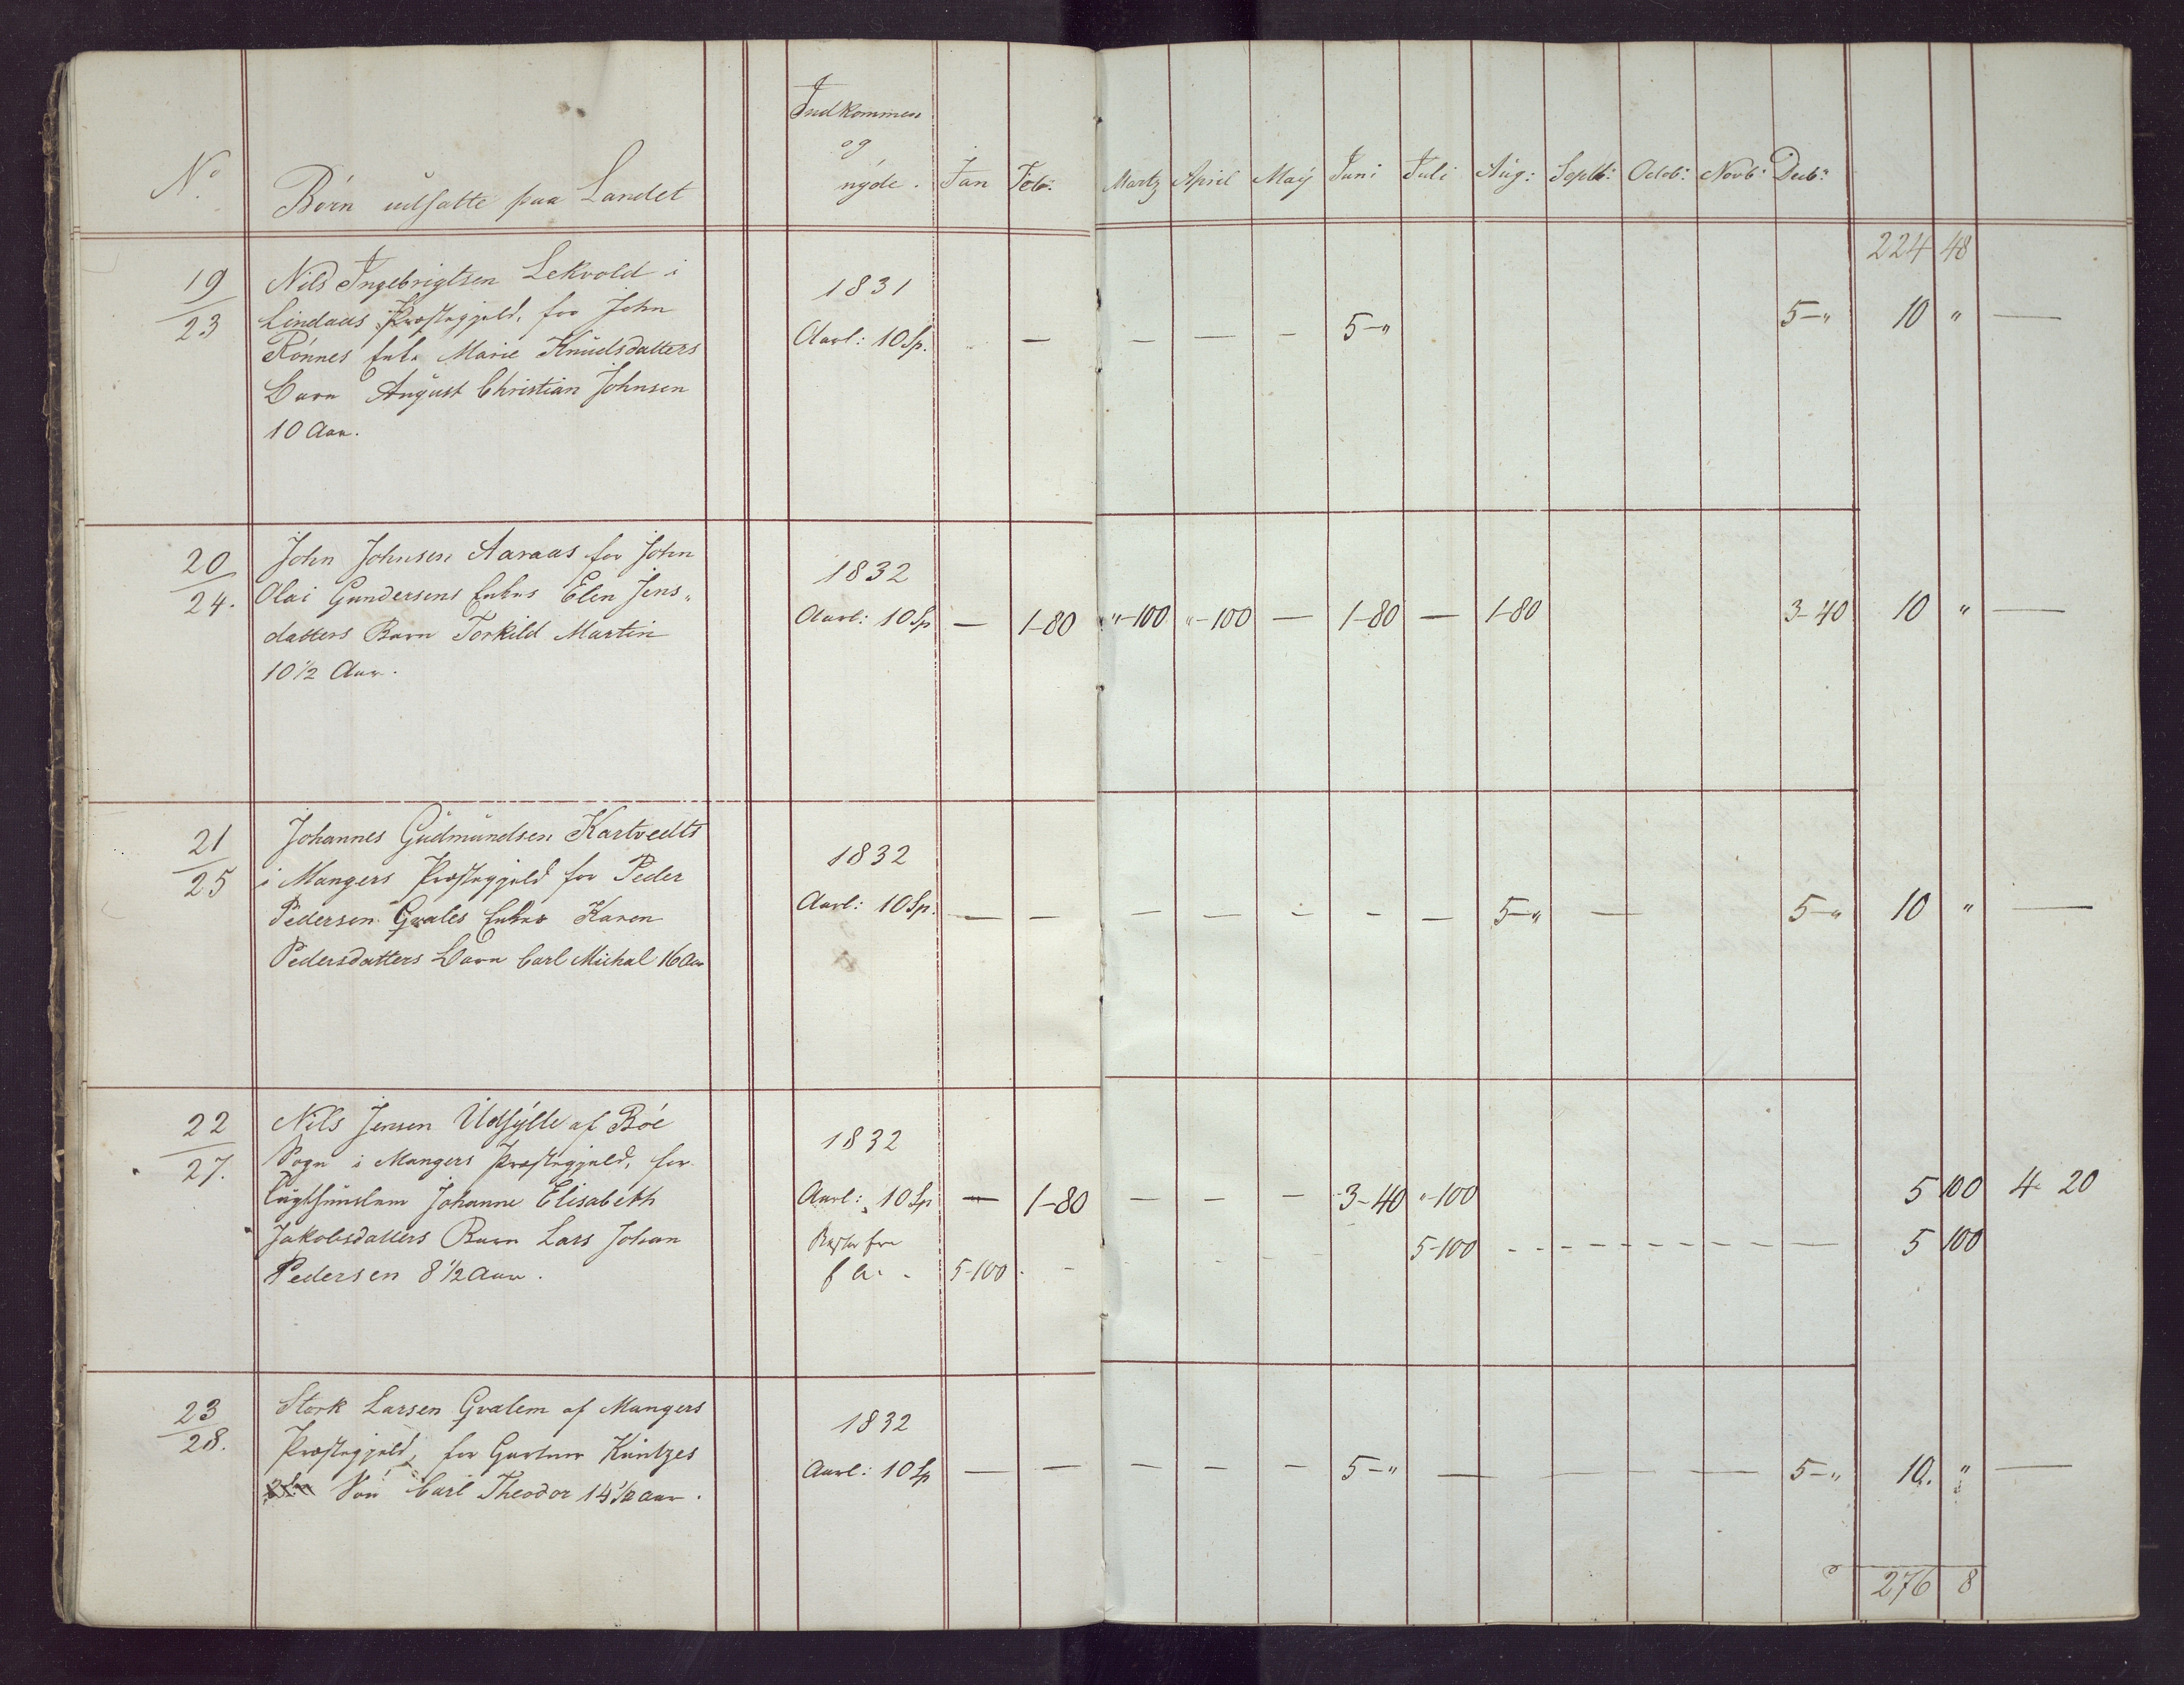 Indkommen
og
nyde.
No.
Børn udsatte paa Landet
Jan Feb: Martz April May Juni Juli Aug: Septb: Octob: Novb: Decb:
224 48
19/23
Nils Ingebrigtsen Lekvold i
Lindaas Præstegjeld, for John
Rönnes Enke Marie Knudsdatters
Barn August Christian Johnsen
10 Aar.
1831
Aarl: 10 Sp.
— — — — 5-" 5-" 10 " —
20/24.
John Johnsen Aaraas for John
Olai Gundersens Enkes Elen Jens-
datters Barn Torkild Martin
10 1/2 Aar.
1832
Aarl: 10 Sp
— 1-80 "-100 "-100 — 1-80 — 1-80 3-40 10 " —
21/25
Johannes Gudmundsen Kartvedts
i Mangers Præstegjeld for Peder
Pedersen Gvales Enkes Karen
Pedersdatters Barn Carl Michal 16 Aar
1832
Aarl: 10 Sp.
— — — — — — — 5-" — 5-" 10 " —
22/27.
Nils Jensen Udsylle af Böe
Sogn i Mangers Præstegjeld, for
Johanne Elisabeth
Jakobsdatters Barn Lars Johan
Pedersen 8 1/2 Aar.
1832
Aarl: 10 Sp
— 1-80 — — — 3-40 "-100 5 100 4 20
Rester fra
f A.
5-100 - - 5-100 - - - - - - 5 100
23/28.
Stork Larsen Gvalem af Mangers
Præstegjeld, for Gartner Küntzes
Sön Carl Theodor 14 1/2 aar.
1832
Aarl: 10 Sp
— — — — — 5-" — — — — — 5-" 10. " —
276 8